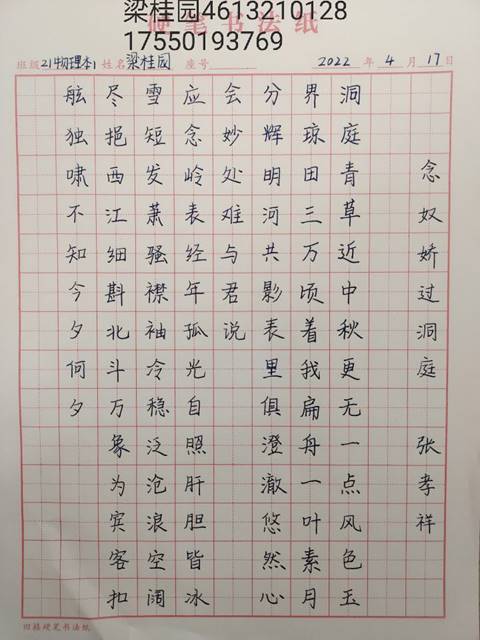 梁桂园4613210128
17550193769
硬笔书法纸
班级21物理本1 姓名梁桂园 座号 2022年4月17日
念奴娇过洞庭 张孝祥
洞庭青草近中秋更无一点风色玉
界琼田三万顷着我扁舟一叶素月
分辉明河共影表里俱澄澈悠然心
会妙处难与君说
应念岭表经年孤光自照肝胆皆冰
雪短发萧骚襟袖冷稳泛沧浪空阔
尽挹西江细斟北斗万象为宾客扣
舷独啸不知今夕何夕
田格硬笔书法纸